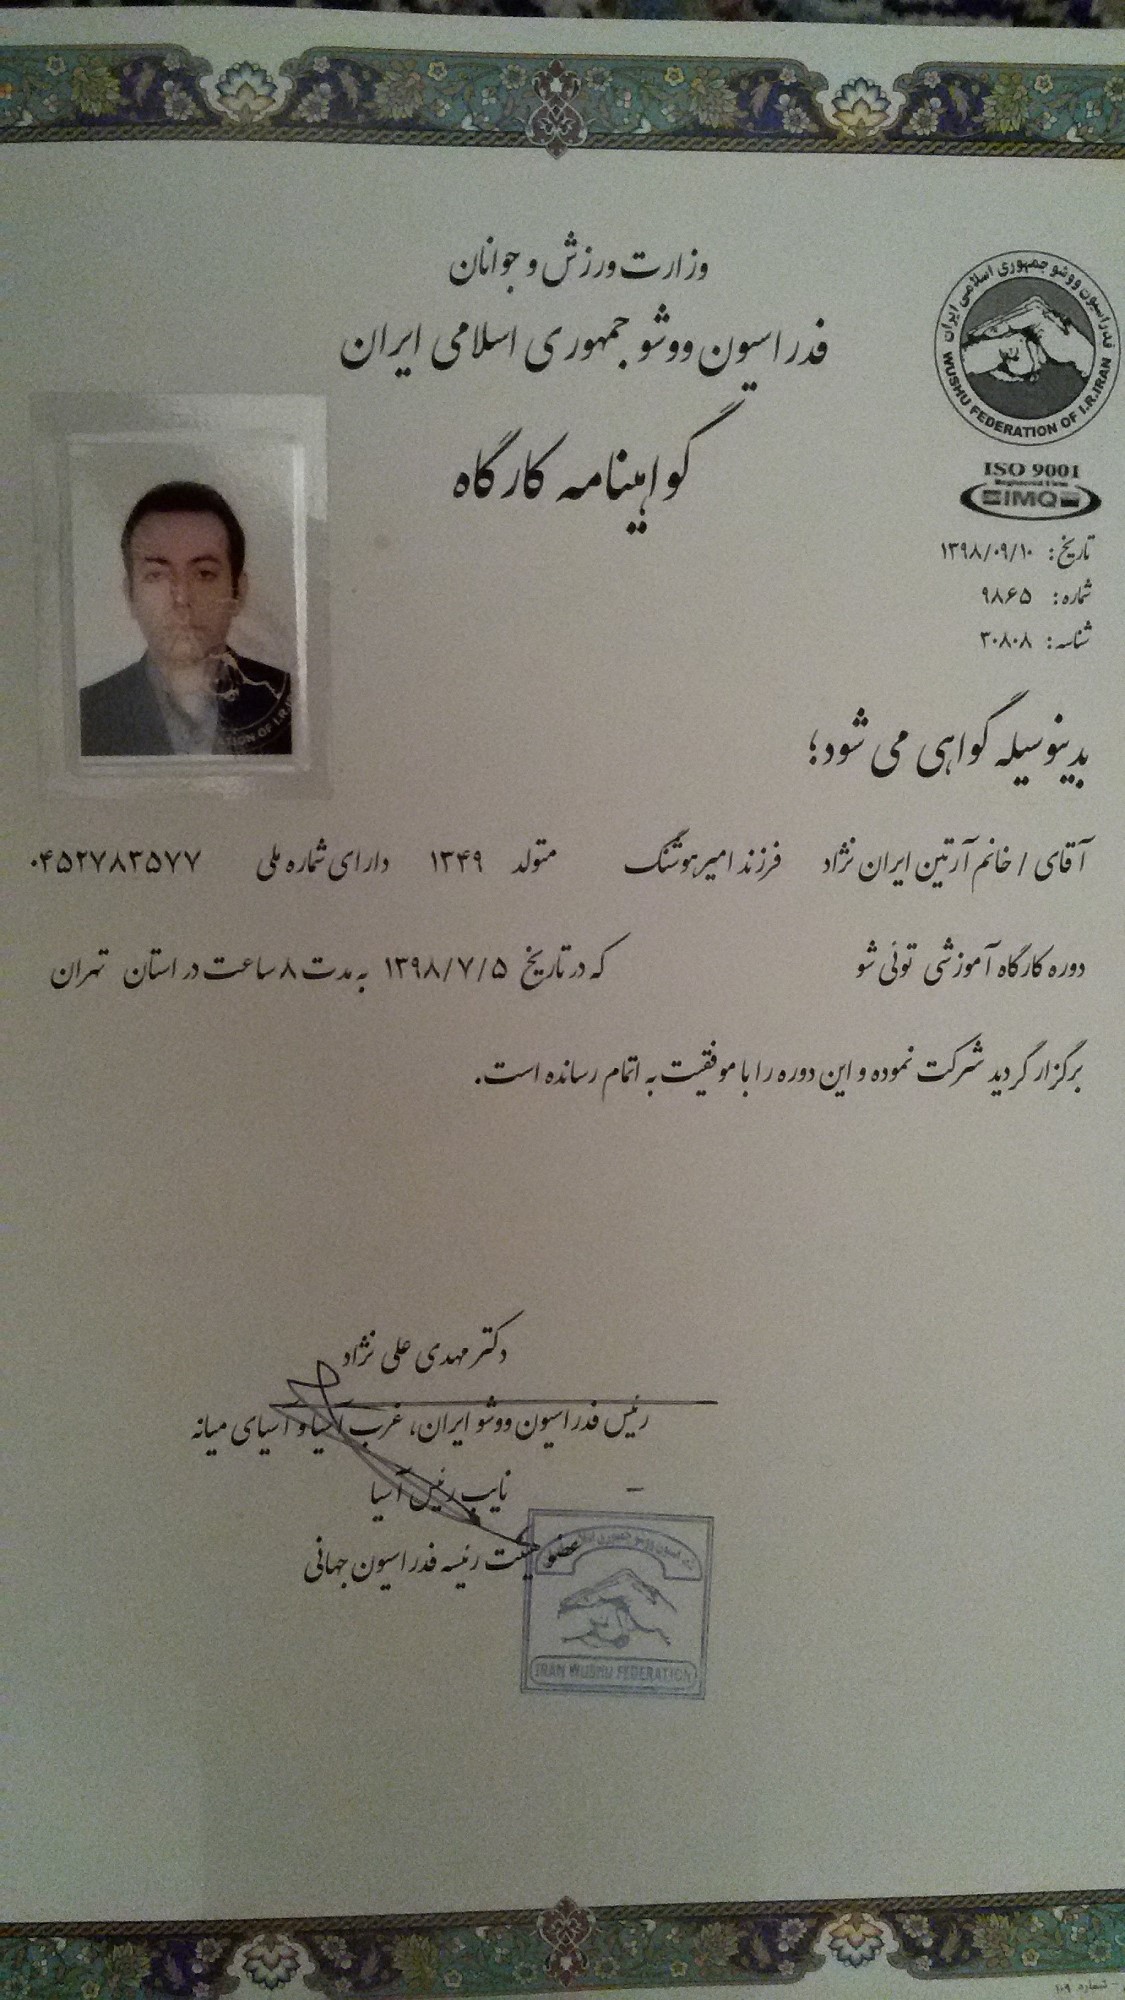 وزارت ورزش و جوانان
فدراسیون ووشو جمهوری اسلامی ایران
گواهینامه کارگاه
فدراسیون ووشو جمهوری اسلامی ایران
WUSHU FEDERATION OF I.R.IRAN
ISO 9001
Registered Firm
IMQ
تاریخ: ۱۳۹۸/۰۹/۱۰
شماره: ۹۸۶۵
شناسه: ۳۰۸۰۸
TION OF I.R.
بدینوسیله گواهی می شود؛
آقای / خانم آرتین ایران نژاد فرزند امیرهوشنگ متولد ۱۳۴۹ دارای شماره ملی ۰۴۵۲۷۸۳۵۷۷
دوره کارگاه آموزشی توئی شو که در تاریخ ۱۳۹۸/۷/۵ به مدت ۸ ساعت در استان تهران
برگزار گردید شرکت نموده و این دوره را با موفقیت به اتمام رسانده است.
دکتر مهدی علی نژاد
رئیس فدراسیون ووشو ایران، غرب آسیا و آسیای میانه
نایب رئیس آسیا
عضو هیئت رئیسه فدراسیون جهانی
IRAN WUSHU FEDERATION